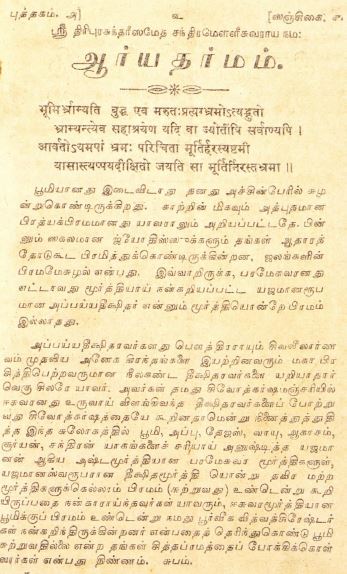 புத்தகம். அ] உ [ஸஞ்சிகை. ௯.
ஸ்ரீ திரிபுரசுந்தரீஸமேத சந்திரமௌளீசுவராய நம:
ஆர்யதர்மம்.
भूमिर्भ्राम्यति बुद्ध एव मरुतःप्रत्यग्भ्रमोऽत्यद्भुतो
भ्राम्यन्त्येव सहाश्रयेण यदि वा ज्योतींषि सर्वाण्यपि ।
आवर्तोऽयमपां भ्रमः परिचिता मूर्तिर्हरस्याष्टमी
यासास्त्यप्पयदीक्षितो जयति सा मूर्तिर्निरस्तभ्रमा ॥
பூமியானது இடைவிடாது தனது அச்சின்பேரில் சுழ
ன்றுகொண்டிருக்கிறது. காற்றின் மிகவும் அத்புதமான
பிரத்யக்பிரமமானது யாவராலும் அறியப்பட்டதே. பின்
னும் ஸகலமான ஜ்யோதிஸ்ஸுக்களும் தங்கள் ஆதாரத்
தோடுகூட பிரமித்துக்கொண்டிருக்கின்றன, ஜலங்களின்
பிரமமேசுழல் என்பது. இவ்வாறிருக்க, பரமேசுவரனது
எட்டாவது மூர்த்தியாய் நன்கறியப்பட்ட யஜமானரூப
மான அப்பய்யதீக்ஷிதர் என்னும் மூர்த்தியொன்றே பிரமம்
இல்லாதது.
அப்பய்யதீக்ஷிதரவர்களது பௌத்திரராயும் சிவலீலார்ண
வம் முதலிய அனேக கிரந்தங்களை இயற்றினவரும் மகா பிர
கித்திபெற்றவருமான நீலகண்ட தீக்ஷிதரவர்களை யறியாதார்
வெகு சிலரே யாவர். அவர்கள் தமது சிவோத்கர்ஷமஞ்சரியில்
ஈசுவரனது உருவாய் விளங்கிவந்த தீக்ஷிதரவர்களைப் போற்று
வது சிவோத்கர்ஷத்தையே கூறினதாமென்று நினைத்துத்துதி
த்த இந்த சுலோகத்தில் பூமி, அப்பு, தேஜஸ், வாயு, ஆகாசம்,
சூர்யன், சந்திரன் யாகங்களைச் சரியாய் அனுஷ்டித்த யஜமா
னன் ஆகிய அஷ்டமூர்த்தியான பரமேசுவர மூர்த்திகளுள்,
யஜமானஸ்வரூபரான தீக்ஷிதமூர்த்தி யொன்று தவிர மற்ற
மூர்த்திகளுக்கெல்லாம் பிரமம் (சுற்றுவது) உண்டென்று கூறி
யிருப்பதை நன்காராய்ந்தவர்கள் யாவரும், ஈசுவரமூர்த்தியான
பூமிக்குப் பிரமம் உண்டென்று நமது பூர்வீக வித்வத்சிரேஷ்டர்
கள் நன்கறிந்திருக்கின்றனர் என்பதைத் தெரிந்துகொண்டு பூமி
சுற்றுவதில்லை என்ற தங்கள் சித்தப்ரமத்தைப் போக்கிக்கொள்
வார்கள் என்பது திண்ணம். சுபம்.